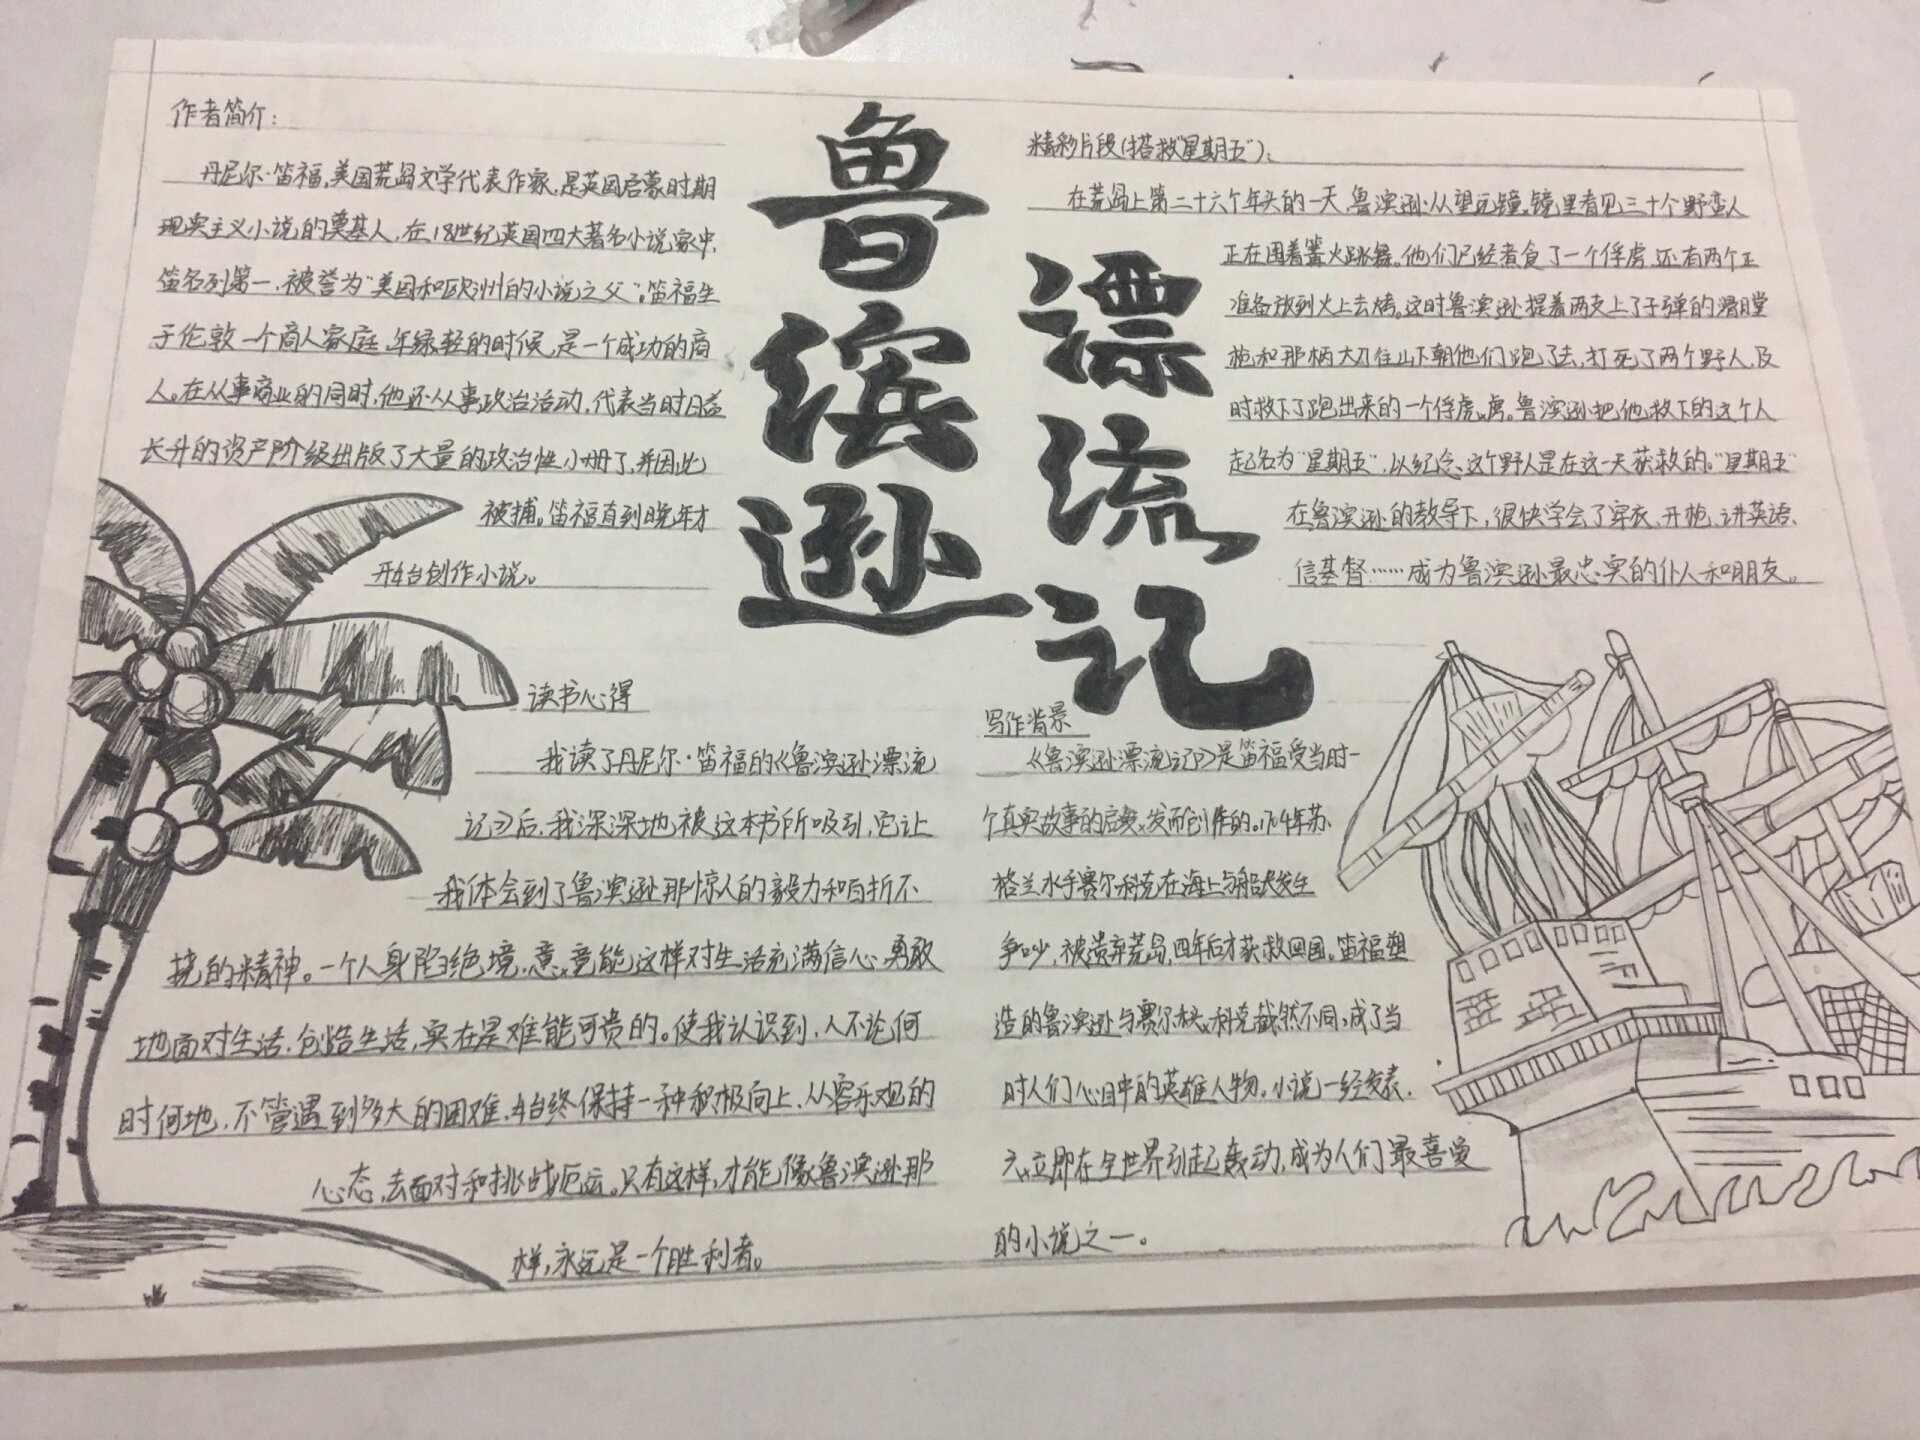 鲁滨逊
漂流记
作者简介:
丹尼尔·笛福,美国荒岛文学代表作家,是英国启蒙时期
现实主义小说的奠基人,在18世纪英国四大著名小说家中,
笛名列第一,被誉为“美国和欧洲的小说之父”。笛福生
于伦敦一个商人家庭,年绿轻的时候,是一个成功的商
人。在从事商业的同时,他还从事政治活动,代表当时日益
长升的资产阶级出版了大量的政治性小册了,并因此
被捕。笛福直到晚年才
开始创作小说。
精彩片段(搭救“星期五”):
在荒岛上第二十六个年头的一天,鲁滨逊从望远镜,镜里看见三十个野蛮人
正在围着篝火跳舞。他们已经煮食了一个俘虏,还有两个正
准备放到火上去烤。这时鲁滨逊提着两支上了子弹的滑膛
枪和那柄大刀往山下朝他们跑了去,打死了两个野人,及
时救下了跑出来的一个俘虏。鲁滨逊把他救下的这个人
起名为“星期五”,以纪念、这个野人是在这一天获救的。“星期五”
在鲁滨逊的教导下,很快学会了穿衣、开枪、讲英语、
信基督……成为鲁滨逊最忠实的仆人和朋友。
读书心得
我读了丹尼尔·笛福的《鲁滨逊漂流
记》后,我深深地被这本书所吸引,它让
我体会到了鲁滨逊那惊人的毅力和百折不
挠的精神。一个人身陷绝境,竟能这样对生活充满信心,勇敢
地面对生活,创造生活,实在是难能可贵的。使我认识到,人不论何
时何地,不管遇到多大的困难,始终保持一种积极向上、从容乐观的
心态,去面对和挑战厄运。只有这样,才能像鲁滨逊那
样,永远是一个胜利者。
写作背景
《鲁滨逊漂流记》是笛福受当时一
个真实故事的启发而创作的。1704年苏
格兰水手赛尔科克在海上与船长发生
争吵,被遗弃荒岛,四年后才获救回国。笛福塑
造的鲁滨逊与赛尔科克截然不同,成了当
时人们心目中的英雄人物。小说一经发表,
立即在全世界引起轰动,成为人们最喜爱
的小说之一。